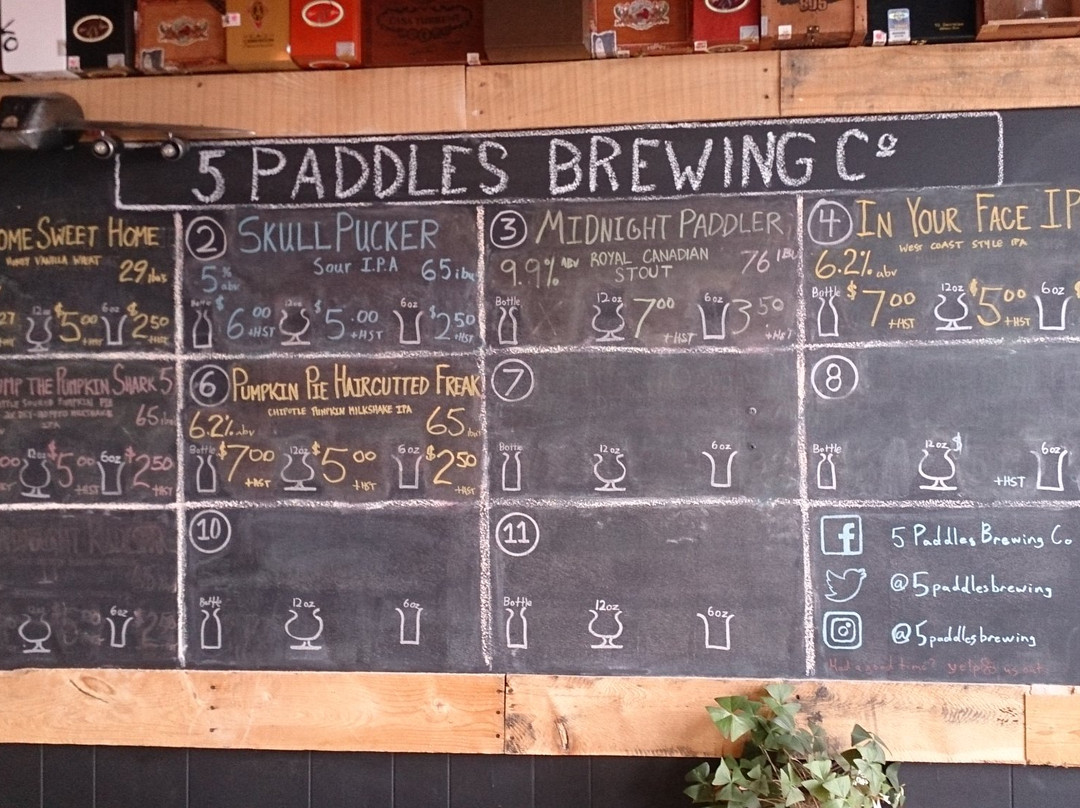 5 PADDLES BREWING Cº
OME SWEET HOME
HONEY VANILLA WHEAT
29 ibus
27 12oz $5.00 +HST 6oz $2.50 +HST
2 SKULL PUCKER
Sour I.P.A
5% abv 65 ibu
Bottle $6.00 +HST 12oz $5.00 +HST 6oz $2.50 +HST
3 MIDNIGHT PADDLER
9.9% ABV ROYAL CANADIAN STOUT 76 IBU
Bottle 12oz 7.00 +HST 6oz 3.50 +HST
4 IN YOUR FACE IP
WEST COAST STYLE IPA
6.2% abv
Bottle $7.00 +HST 12oz $5.00 +HST 6oz $
UMP THE PUMPKIN SHARK 5
65 ibu
00 +HST 12oz $5.00 +HST 6oz $2.50 +HST
6 PUMPKIN PIE HAIRCUTTED FREAK
CHIPOTLE PUMPKIN MILKSHAKE IPA
6.2% abv 65 ibu
Bottle $7.00 +HST 12oz $5.00 +HST 6oz $2.50 +HST
7
Bottle 12oz 6oz
8
Bottle 12oz $ +HST 6oz
6oz
10
Bottle 12oz 6oz
11
Bottle 12oz 6oz
5 Paddles Brewing Co
@5paddlesbrewing
@5paddlesbrewing
Had a good time? yelp us out